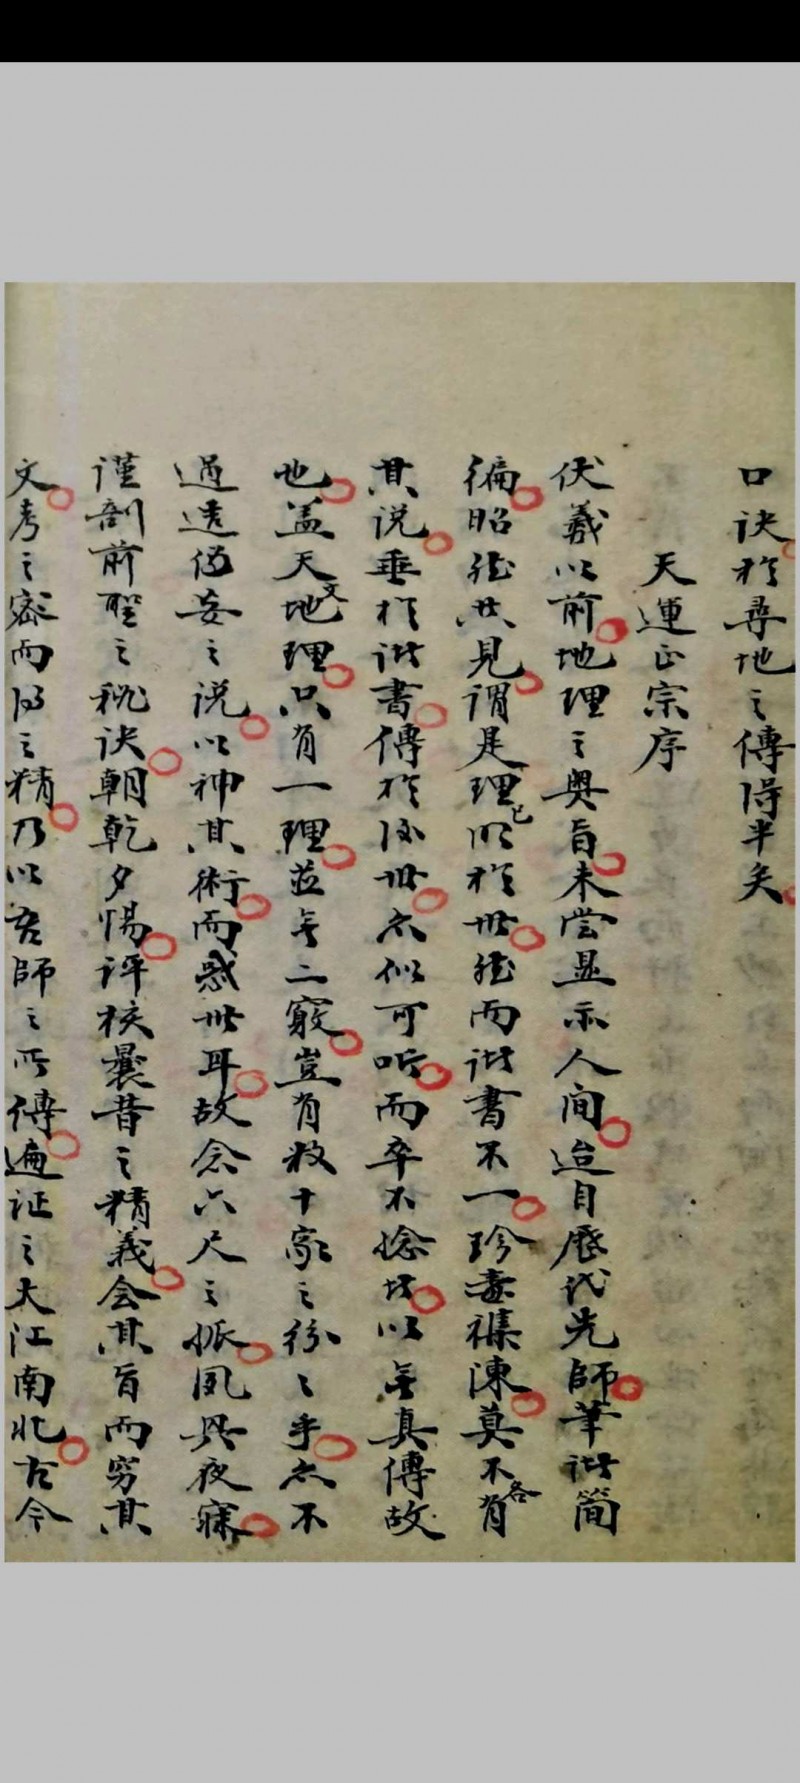 口诀於尋地之傳得半矣
天運正宗序
伏羲以前地理之奥旨未尝显示人间迨自歷代先師筆诸简
徧昭然共見谓是理已明於世然而诸書不一珍袠襍陳莫不各有
其说垂於诸書傳於後世亦似可听而卒不验者以無真傳故
也盖天文地理只有一理並無二竅岂有数十家之纷々乎亦不
過造偽妄之说以神其術而惑世耳故念六尺之孤夙興夜寐
謹剖前聖之秘诀朝乾夕惕评核曩昔之精義会其旨而穷其
文考之密而得之精乃以吾師之所傳遍证之大江南北古今